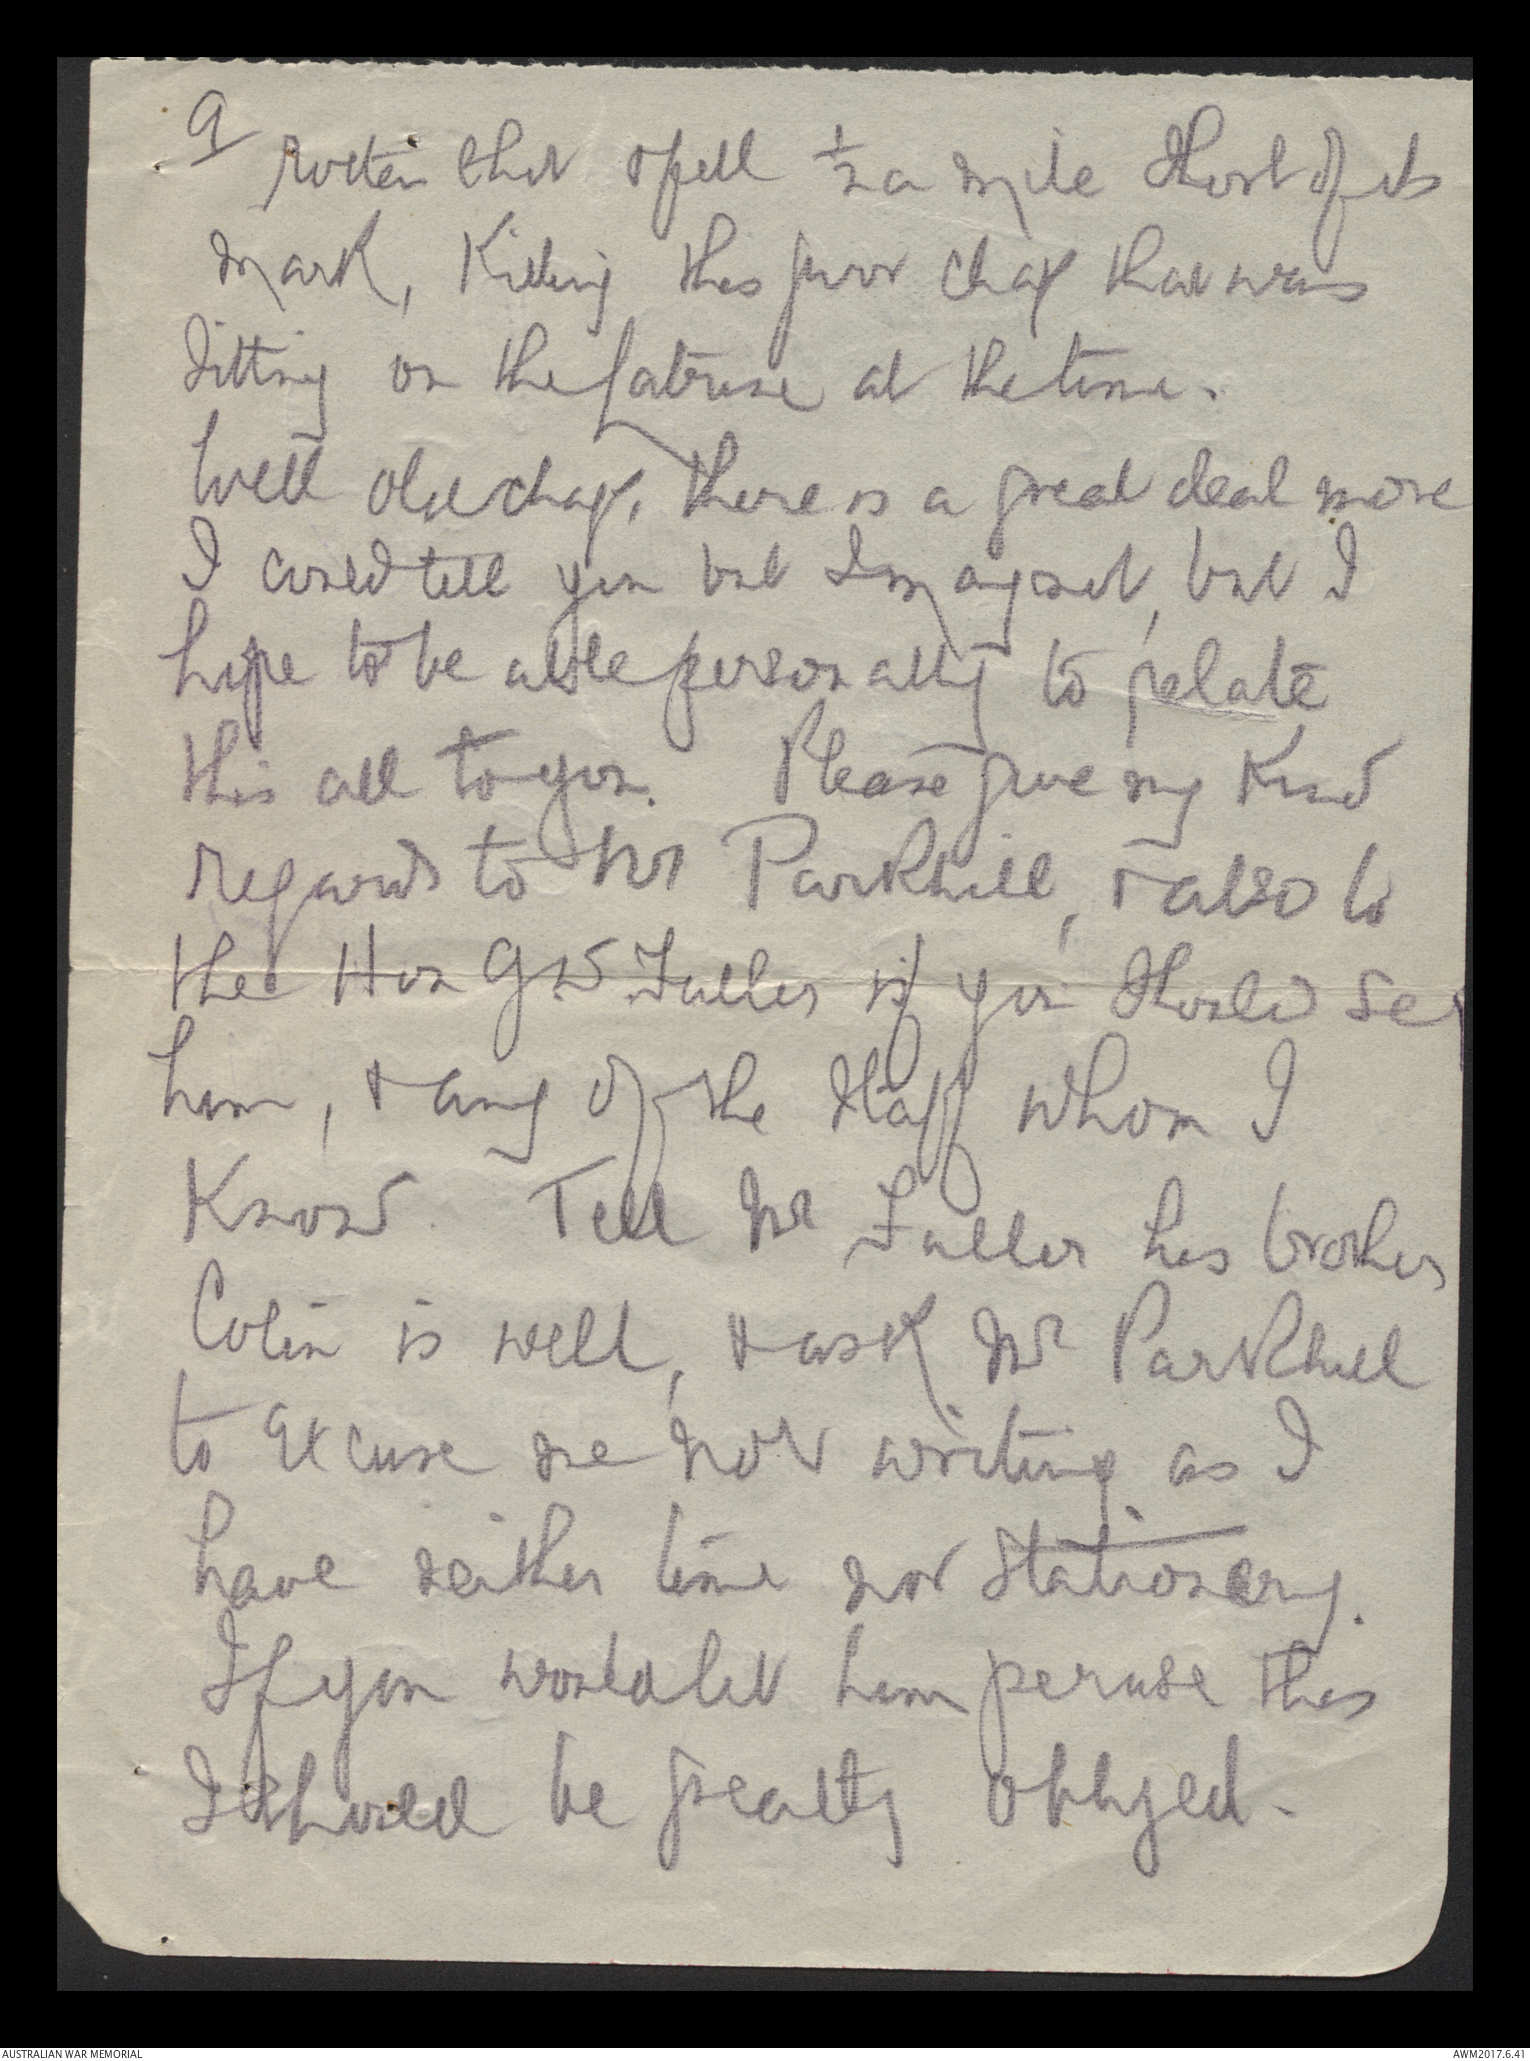 9
rotten shot & fell ½ a mile short of its
mark, killing this poor chap that was
sitting on the Latrine at the time.
Well old chap, there is a great deal more
I could tell you but I may not, but I
hope to be able personally to relate
this all to you. Please give my kind
regards to Mr Parkhill, & also to
the Hon G W. Fuller if you should see
him, & any of the Staff whom I
know. Tell Mr Fuller his brother
Colin is well, & ask Mr Parkhill
to excuse me not writing as I
have neither time nor stationery.
If you would let him peruse this
I should be greatly obliged.
AUSTRALIAN WAR MEMORIAL
AWM2017.6.41